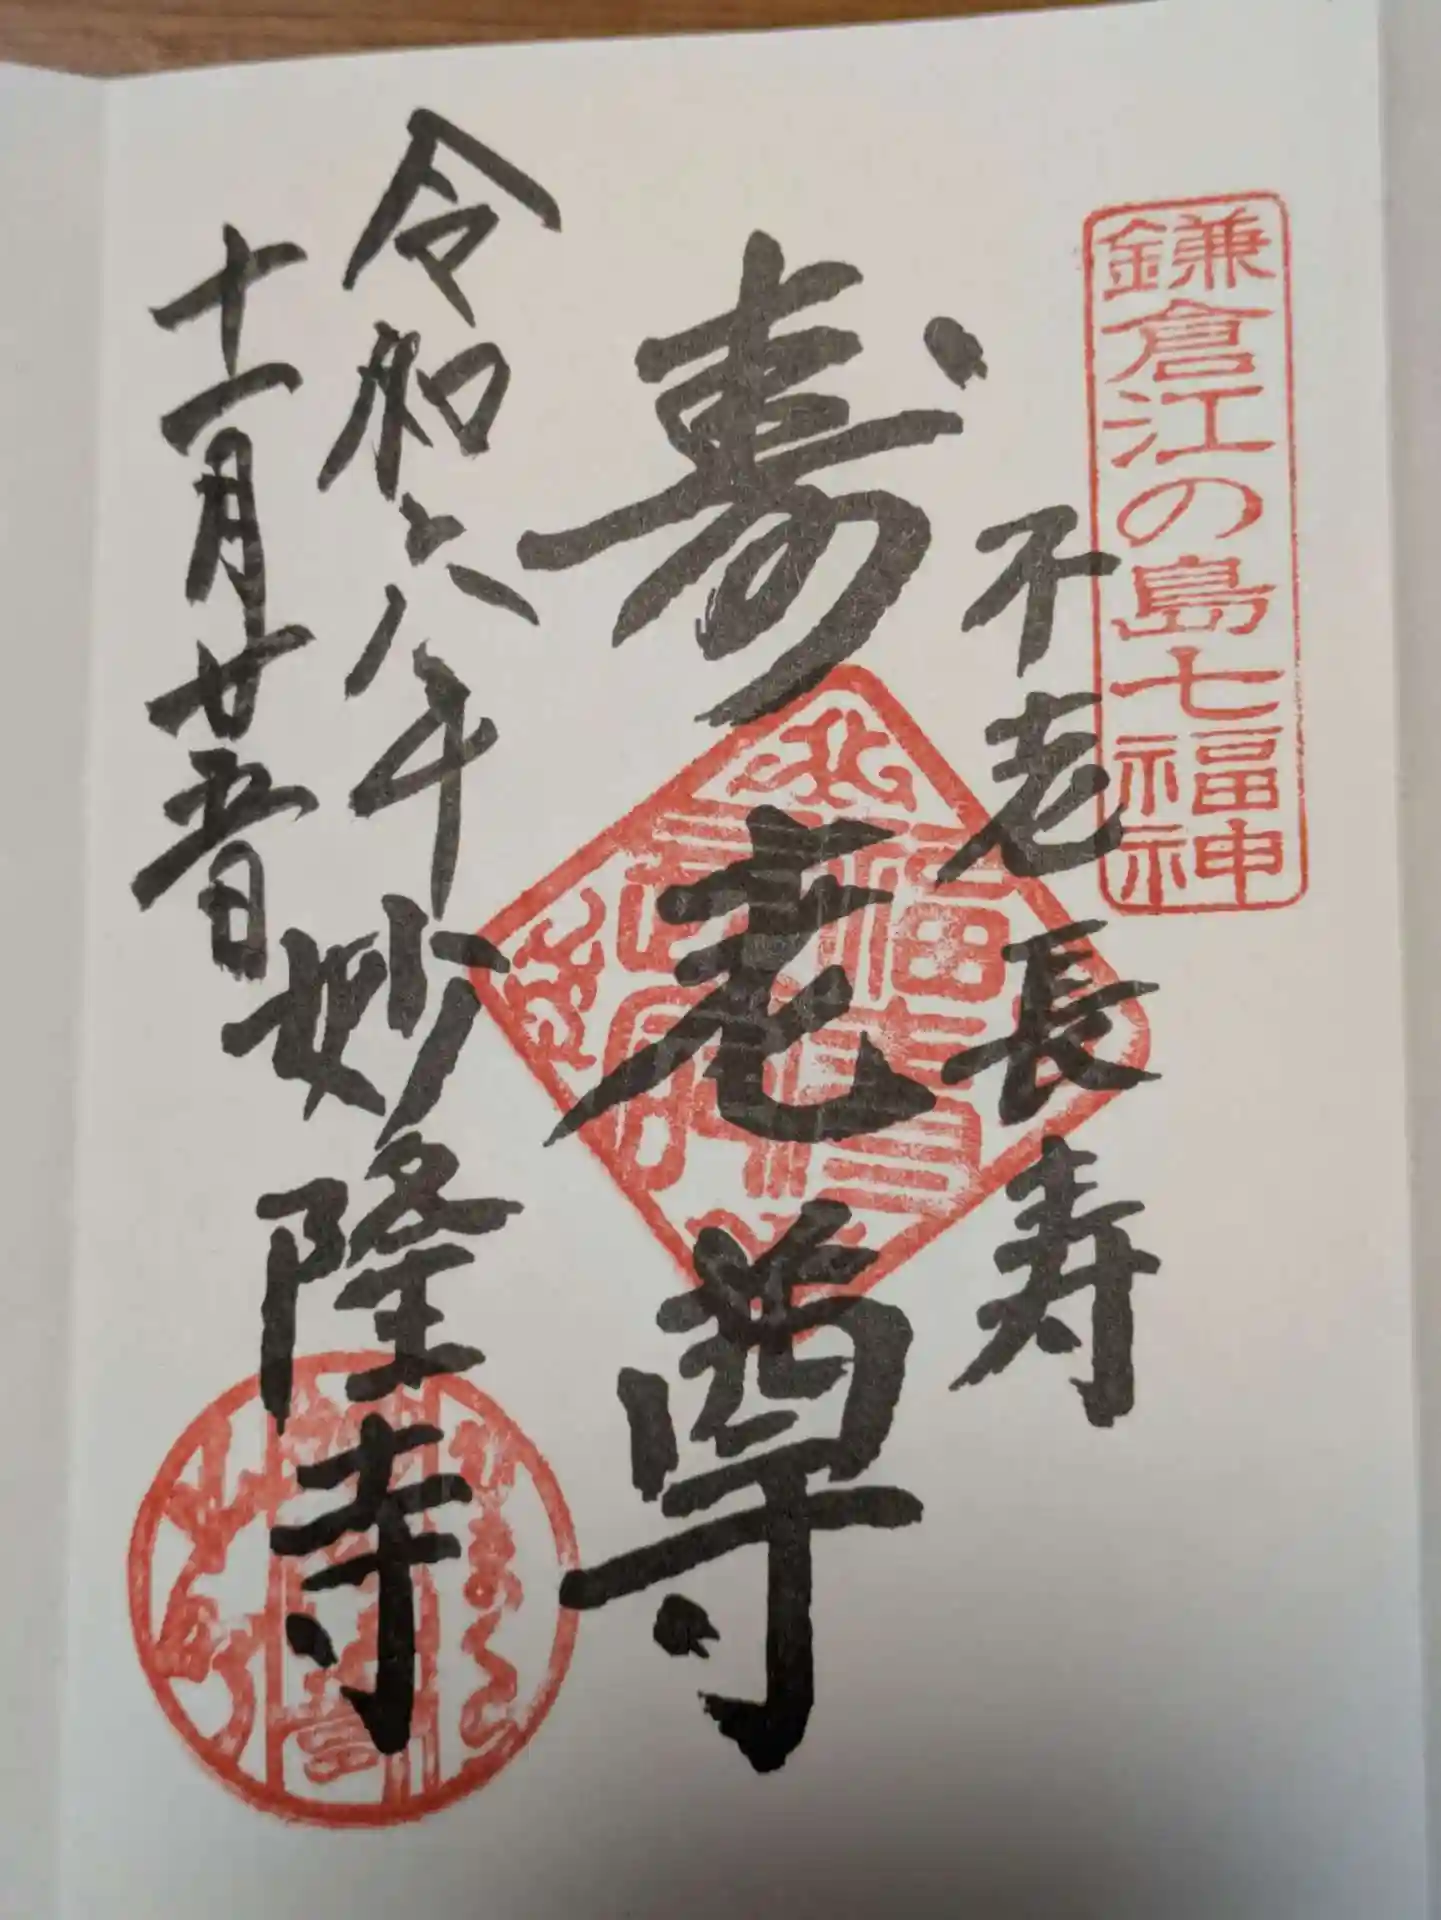 鎌倉江の島七福神
不老長寿
寿老尊
令和六年
十一月廿五日
妙隆寺